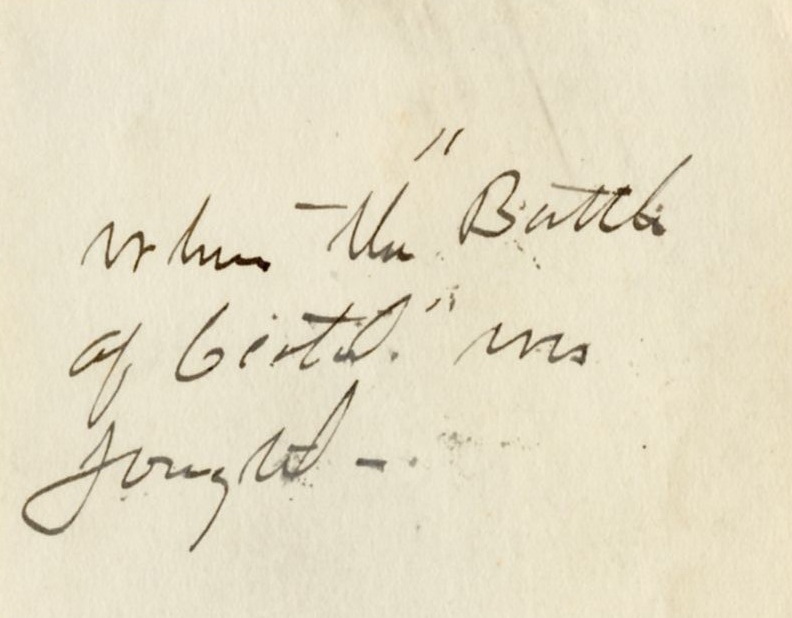 when the "Battle
of was
fought -